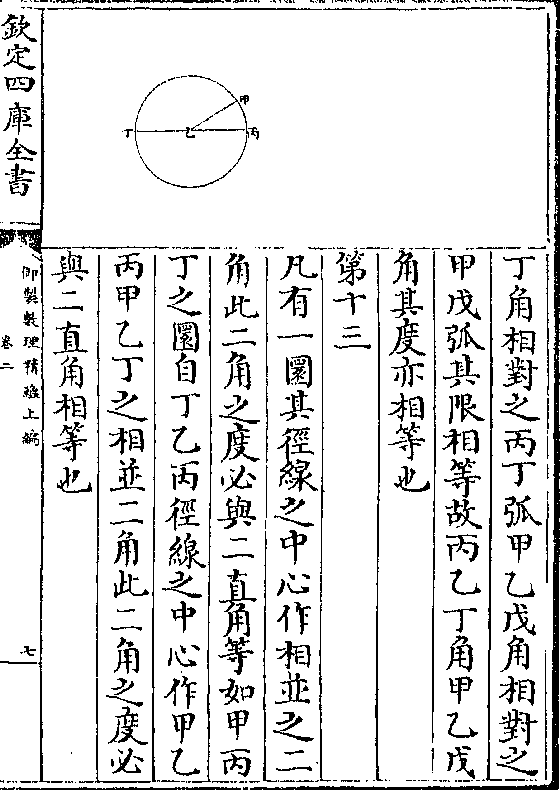 丁角相對之丙丁弧甲乙戊角相對之
甲戊弧其限相等故丙乙丁角甲乙戊
角其度亦相等也
第十三
凡有一圜其徑線之中心作相並之二
角此二角之度必與二直角等如甲丙
丁之圜自丁乙丙徑線之中心作甲乙
丙甲乙丁之相並二角此二角之度必
與二直角相等也
甲
丁
乙
丙
欽定四庫全書
御製數理精蘊上編
卷二
七